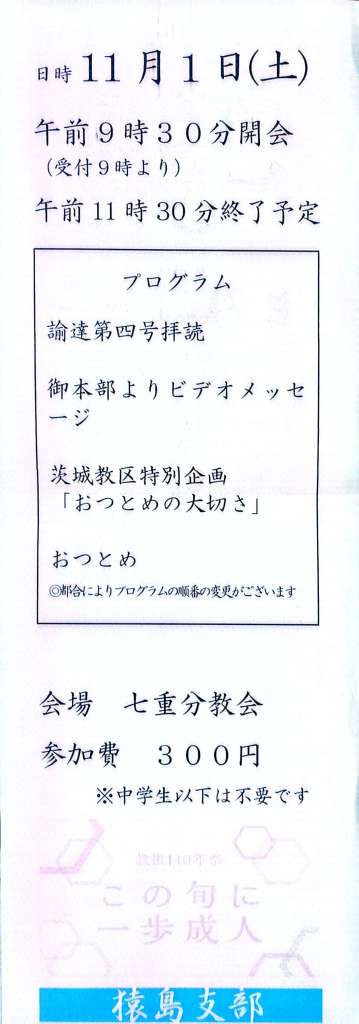 日時 11月1日(土)
午前9時30分開会
(受付9時より)
午前11時30分終了予定
プログラム
諭達第四号拝読
御本部よりビデオメッセ
ージ
茨城教区特別企画
「おつとめの大切さ」
おつとめ
◎都合によりプログラムの順番の変更がございます
会場　七重分教会
参加費　300円
※中学生以下は不要です
教祖140年祭
この旬に
一歩成人
猿島支部